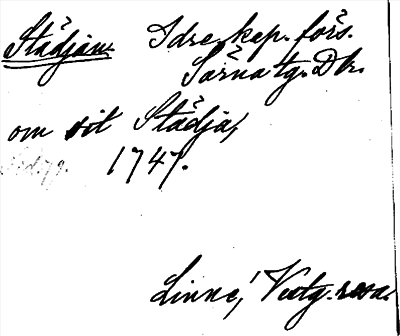 Städjan. Idre kap. förs.
Särna tg. Dlr.
om sit Städja,
1747.
Linné, Vestg. resa.